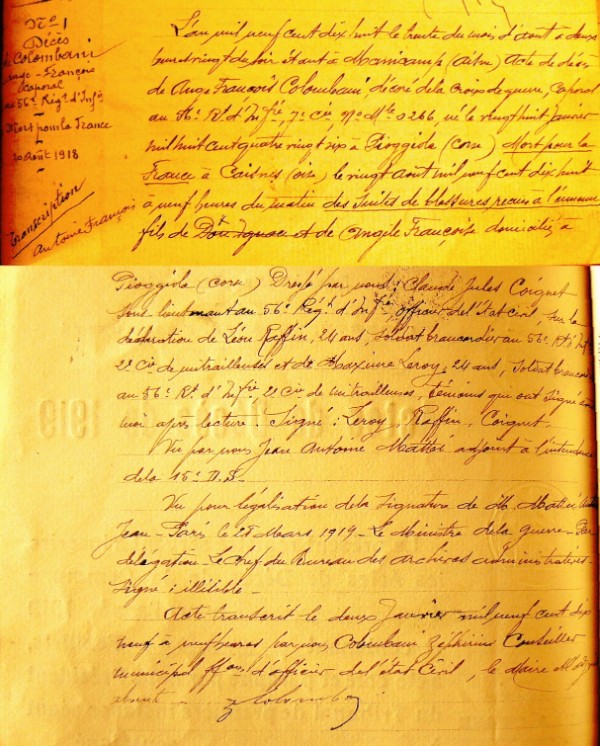 N° 1
Décès
de Colombani
Ange-François
caporal
au 56e Régt d'Infie
Mort pour la France
20 Août 1918
Transcription
Antoine François
L'an mil neuf cent dix huit le trente du mois d'août à deux
heures vingt du soir étant à Manicamp (Aisne) Acte de décès
de Ange François Colombani décoré de la croix de guerre, caporal
au 56e Rt d'Infie, 7e Cie, No Mle 0266, né le vingt huit Janvier
mil huit cent quatre vingt six à Pioggiola (corse) Mort pour la
France à Caisnes (oise) le vingt août mil neuf cent dix huit
à neuf heures du matin des suites de blessures reçues à l'ennemi
fils de et de Angèle Françoise domiciliés à
Pioggiola (corse) Dressé par nous, Claude Jules Coignet
Sous lieutenant au 56e Régt d'Infie, officier de l'état civil, sur la
déclaration de Léon Raffin, 24 ans, soldat brancardier au 56e Rt d'Infie
2e Cie de mitrailleuses et de Maxime Leroy, 24 ans, Soldat brancardier
au 56e Rt d'Infie 2e Cie de mitrailleuses, témoins qui ont signé avec
moi après lecture. Signé: Leroy, Raffin, Coignet.
Vu par nous Jean Antoine Mattéi adjoint à l'intendance
de la 15e D.I.
Vu pour légalisation de la signature de M. Mattéi
Jean - Paris le 28 Mars 1919 - Le Ministre de la guerre - Par
délégation - Le chef du Bureau des archives administratives -
Signé: illisible -
Acte transcrit le deux Janvier mil neuf cent dix
neuf à neuf heures par nous Colombani Zéphirin Conseiller
municipal ffons d'officier de l'état civil, le Maire
Colombani